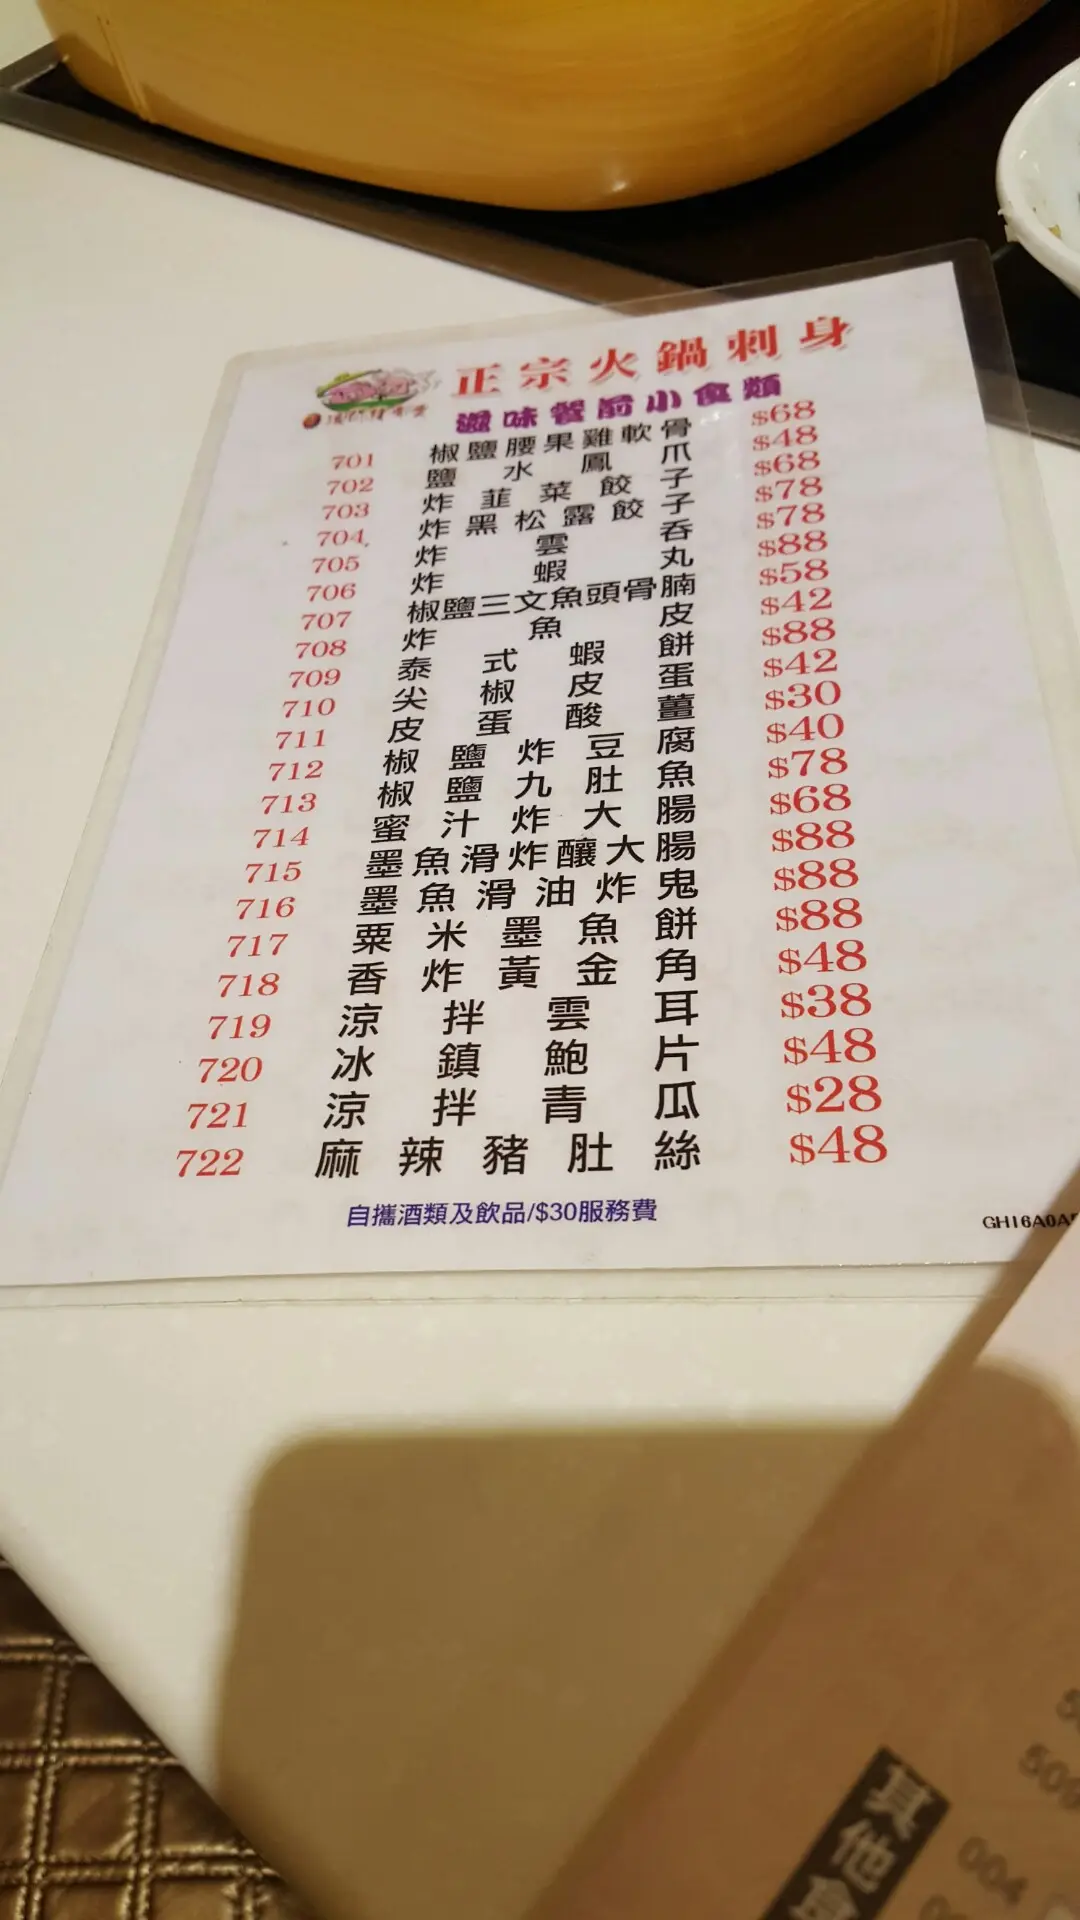 正宗火鍋刺身
滋味餐前小食類
701 椒鹽腰果雞軟骨 $68
702 鹽水鳳爪 $48
703 炸韮菜餃子 $68
704 炸黑松露餃子 $78
705 炸雲吞 $78
706 炸蝦丸 $88
707 椒鹽三文魚頭骨腩 $58
708 炸魚皮 $42
709 泰式蝦餅 $88
710 尖椒皮蛋 $42
711 皮蛋酸薑 $30
712 椒鹽炸豆腐 $40
713 椒鹽九肚魚 $78
714 蜜汁炸大腸 $68
715 墨魚滑炸釀大腸 $88
716 墨魚滑油炸鬼 $88
717 粟米墨魚餅 $88
718 香炸黃金角 $48
719 涼拌雲耳 $38
720 冰鎮鮑片 $48
721 涼拌青瓜 $28
722 麻辣豬肚絲 $48
自攜酒類及飲品/$30服務費
GH16A0A
004